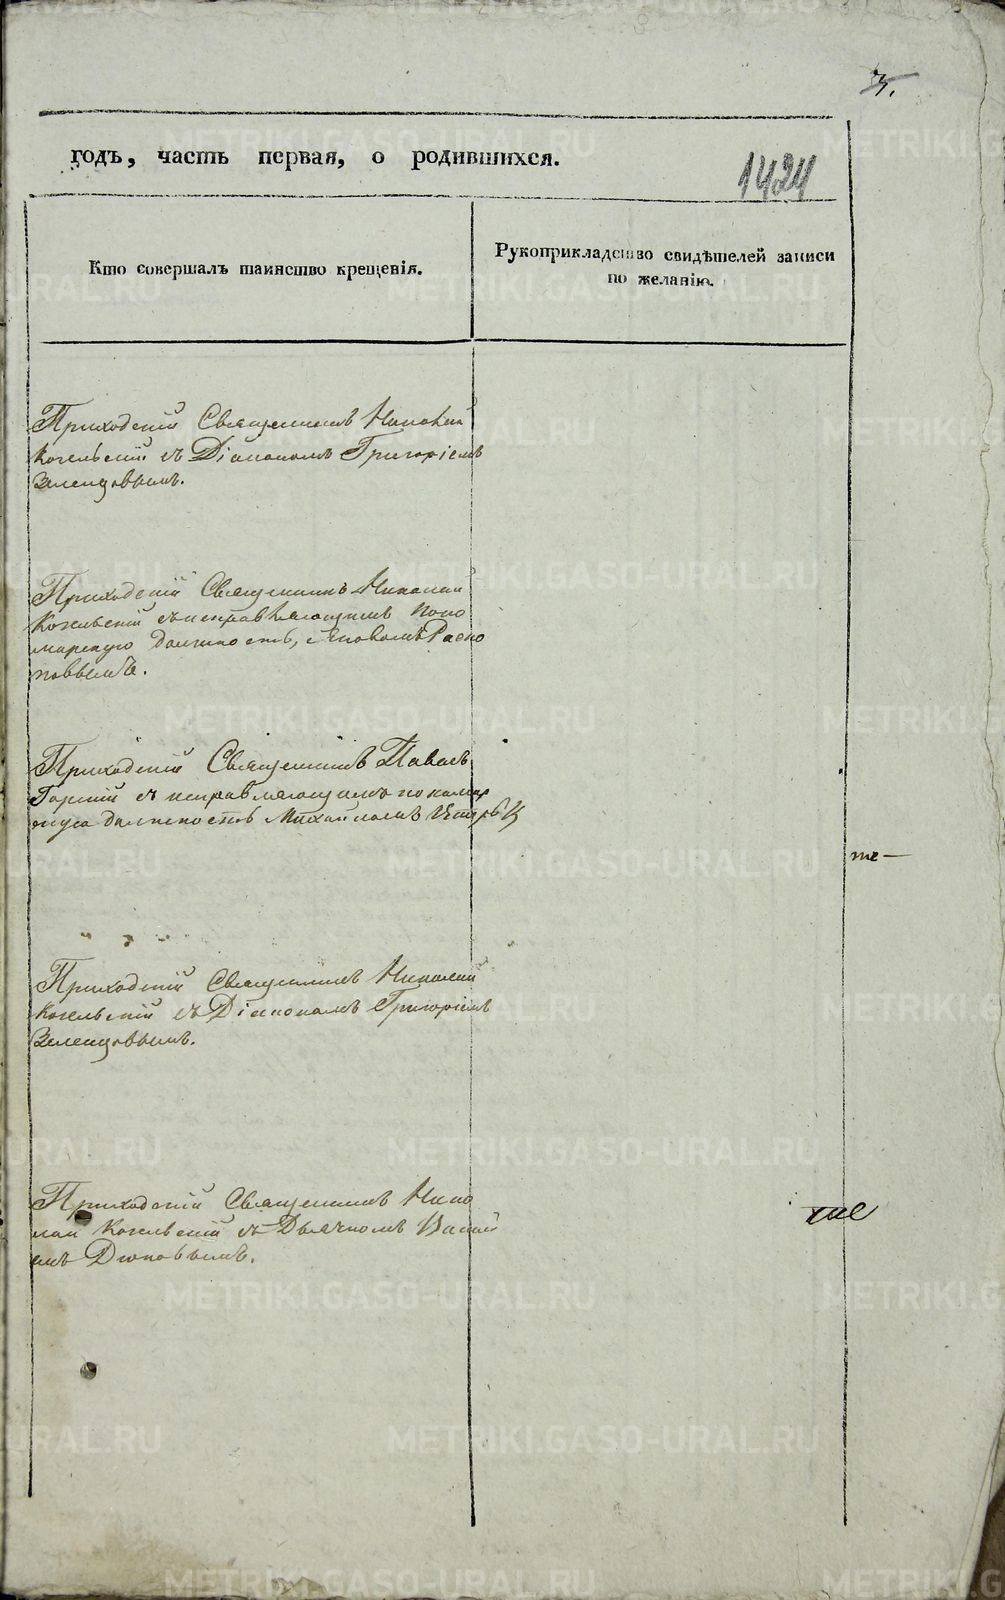 3.
годъ, часть первая, о родившихся.
1424
Кто совершалъ таинство крещенія.
Рукоприкладство свидѣтелей записи
по желанію.
Приходскій Священникъ Николай
Когельскій съ Діакономъ Григоріемъ
Зеленцовымъ.
Приходскій Священникъ Николай
Когельскій съ исправляющимъ поно
марскую должность, Яковомъ Распо
повымъ.
Приходскій Священникъ Павелъ
Горскій съ исправляющимъ понамар
скую должность Михайломъ
те
Приходскій Священникъ Николай
Когельскій съ Діакономъ Григоріемъ
Зеленцовымъ.
Приходскій Священникъ Нико
лай Когельскій съ Дьячкомъ Васил
емъ Дюковымъ.
METRIKI.GASO-URAL.RU